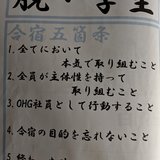 脱・学生
合宿五箇条
1.全てにおいて
本気で取り組むこと
2.全員が主体性を持って
取り組むこと
3.OHG社員として行動すること
4.合宿の目的を忘れないこと